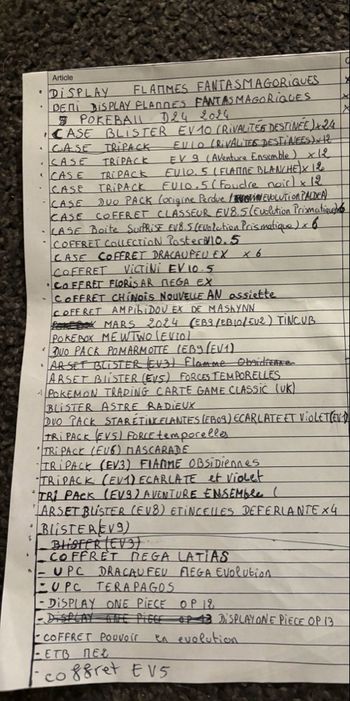 Article
DISPLAY FLAMMES FANTASMAGORIQUES
DEMI DISPLAY FLAMMES FANTASMAGORIQUES
5 POKEBALL D24 2024
CASE BLISTER EV10 (RIVALITÉS DESTINÉE) x 24
CASE TRIPACK EV10 (RIVALITÉS DESTINÉES) x 12
CASE TRIPACK EV 9 (Aventure Ensemble) x 12
CASE TRIPACK EV10.5 (FLAMME BLANCHE) x 12
CASE TRIPACK EV10.5 (Foudre noir) x 12
CASE DUO PACK (origine Perdue / EVOLUTION PALDEA)
CASE COFFRET CLASSEUR EV8.5 (Evolution Prismatique) x 6
CASE Boite SURPRISE EV8.5 (Evolution Prismatique) x 6
COFFRET COLLECTION Poster EV10.5
CASE COFFRET DRACAUFEU EX x 6
COFFRET VICTINI EV10.5
COFFRET FLORISAR MEGA EX
COFFRET CHINOIS NOUVELLE AN assiette
COFFRET AMPHIDOU EX DE MASHYNN
MARS 2024 (EB9/EB10/EV2) TINCUB
POKEBOX MEWTWO (EV10)
DUO PACK POMARMOTTE (EB9 (EV1)
ARSET BLISTER (EV3) Flamme Obsidienne
ARSET BLISTER (EV5) FORCES TEMPORELLES
POKEMON TRADING CARTE GAME CLASSIC (UK)
BLISTER ASTRE RADIEUX
DUO PACK STARS ÉTINCELANTES (EB09) ECARLATE ET VIOLET (EV1)
TRIPACK (EV5) FORCE temporelles
TRIPACK (EV6) MASCARADE
TRIPACK (EV3) FLAMME OBSIDIENNES
TRIPACK (EV1) ECARLATE et Violet
TRI PACK (EV9) AVENTURE ENSEMBLE (
ARSET BLISTER (EV8) ETINCELLES DEFERLANTE x4
BLISTER (EV9)
BLISTER (EV3)
COFFRET MEGA LATIAS
- UPC DRACAUFEU MEGA EVOLUTION
- UPC TERAPAGOS
- DISPLAY ONE PIECE OP 12
- DISPLAY ONE PIECE OP 13 DISPLAY ONE PIECE OP 13
- COFFRET POUVOIR en evolution
- ETB ME2
- coffret EV5